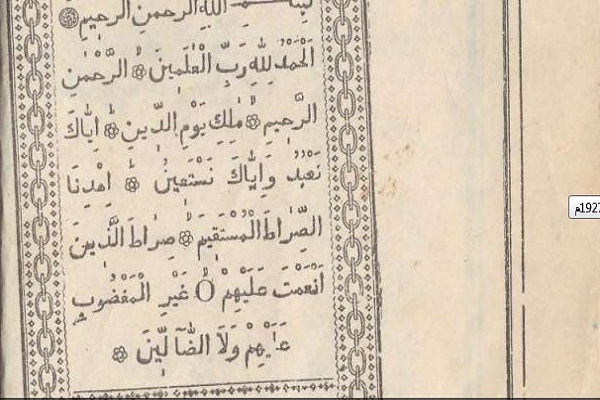 بسم الله الرحمن الرحيم
اَلْحَمْدُ لِلّٰهِ رَبِّ الْعٰلَمِيْنَ ۞ الرَّحْمٰنِ
الرَّحِيْمِ ۞ مٰلِكِ يَوْمِ الدِّيْنِ ۞ اِيَّاكَ
نَعْبُدُ وَاِيَّاكَ نَسْتَعِيْنُ ۞ اِهْدِنَا
الصِّرَاطَ الْمُسْتَقِيْمَ ۞ صِرَاطَ الَّذِيْنَ
اَنْعَمْتَ عَلَيْهِمْ ۞ غَيْرِ الْمَغْضُوْبِ
عَلَيْهِمْ وَلَا الضَّآلِّيْنَ ۞
1927م